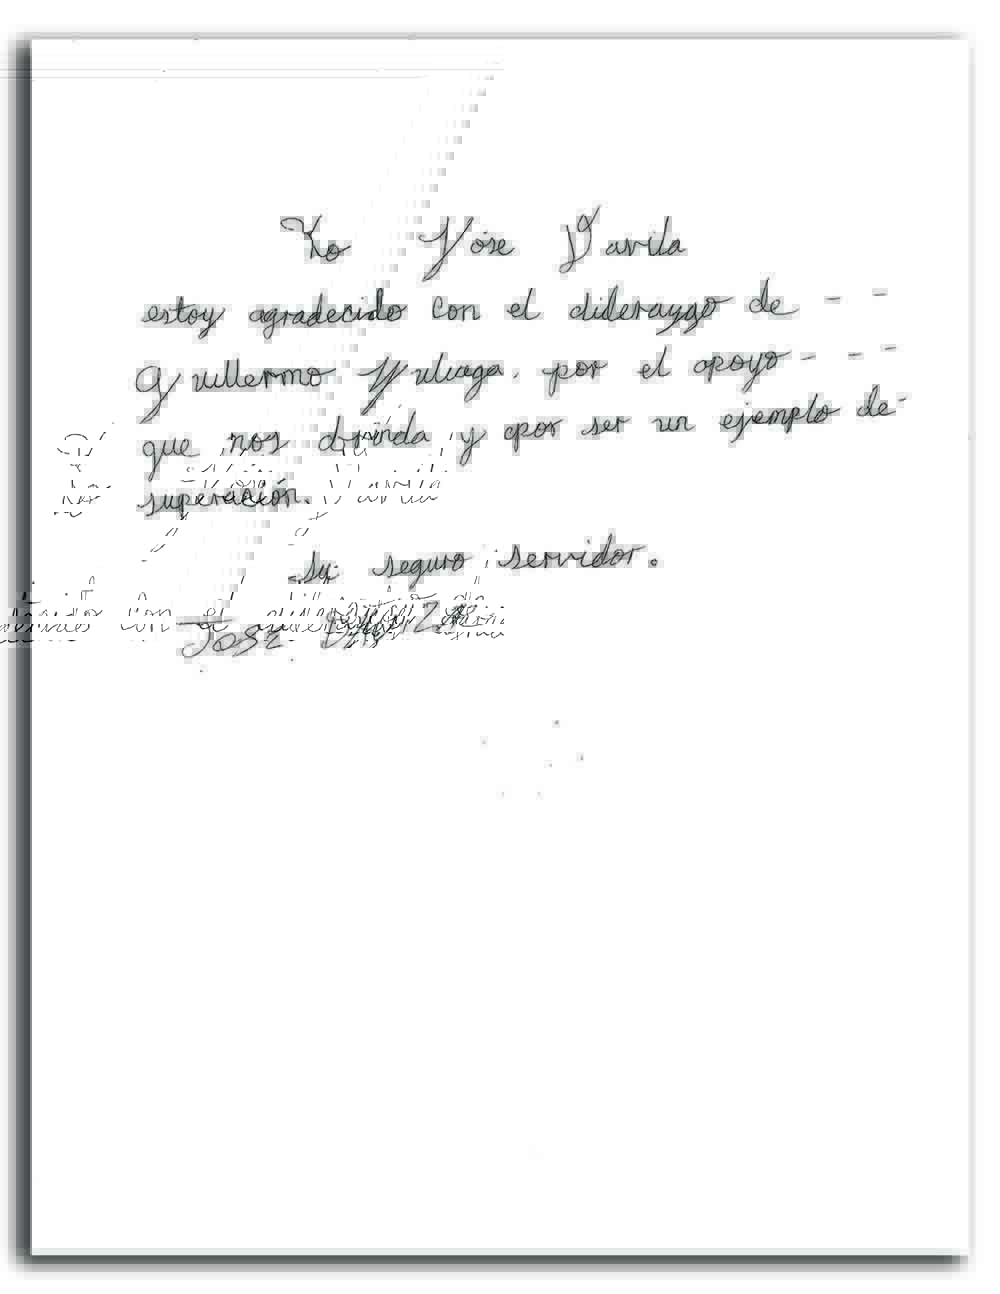 Yo José Davila
estoy agradecido con el dilerazgo de - -
Guillermo Zuluaga. por el apoyo - - -
que nos brinda y por ser un ejemplo de-
superación.
su seguro servidor.
JOSE